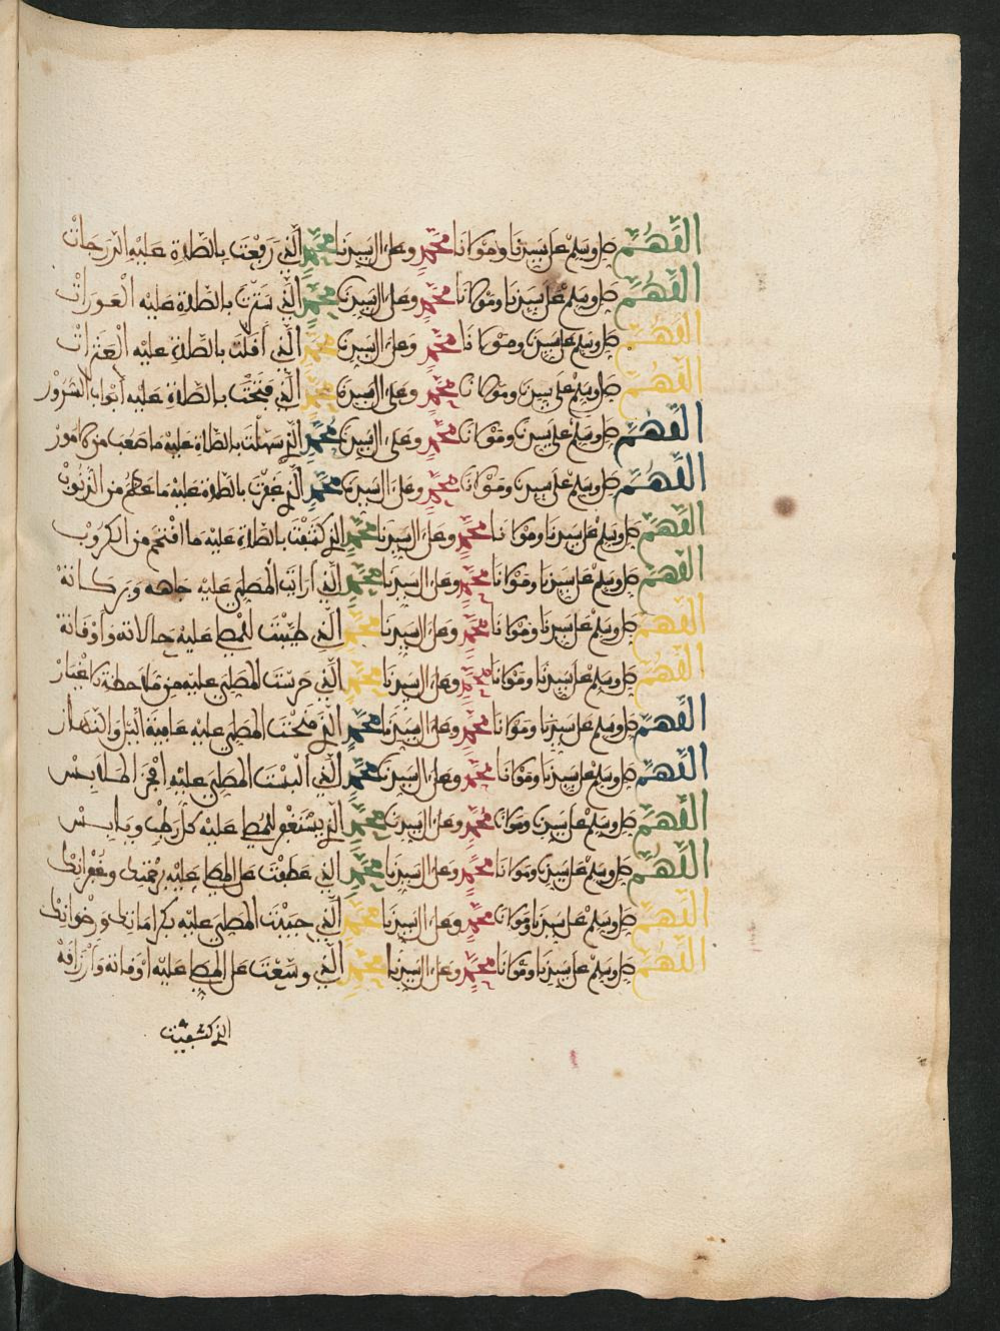 اللهم صل وسلم على سيدنا ومولانا محمد وعلى ال سيدنا محمد الذي رفعت بالصلاة عليه الدرجات
اللهم صل وسلم على سيدنا ومولانا محمد وعلى ال سيدنا محمد الذي سترت بالصلاة عليه العورات
اللهم صل وسلم على سيدنا ومولانا محمد وعلى ال سيدنا محمد الذي أقلت بالصلاة عليه العثرات
اللهم صل وسلم على سيدنا ومولانا محمد وعلى ال سيدنا محمد الذي فتحت بالصلاة عليه أبواب السرور
اللهم صل وسلم على سيدنا ومولانا محمد وعلى ال سيدنا محمد الذي سهلت بالصلاة عليه ما صعب من الامور
اللهم صل وسلم على سيدنا ومولانا محمد وعلى ال سيدنا محمد الذي غفرت بالصلاة عليه ما عظم من الذنوب
اللهم صل وسلم على سيدنا ومولانا محمد وعلى ال سيدنا محمد الذي كشفت بالصلاة عليه ما من الكروب
اللهم صل وسلم على سيدنا ومولانا محمد وعلى ال سيدنا محمد الذي المصلي عليه جاهه وبركاته
اللهم صل وسلم على سيدنا ومولانا محمد وعلى ال سيدنا محمد الذي طيبت للمصلي عليه حالاته وأوقاته
اللهم صل وسلم على سيدنا ومولانا محمد وعلى ال سيدنا محمد الذي حرست المصلي عليه من ملاحظة الاغيار
اللهم صل وسلم على سيدنا ومولانا محمد وعلى ال سيدنا محمد الذي منحت المصلي عليه عافية الليل والنهار
اللهم صل وسلم على سيدنا ومولانا محمد وعلى ال سيدنا محمد الذي ألبست المصلي عليه افخر الملابس
اللهم صل وسلم على سيدنا ومولانا محمد وعلى ال سيدنا محمد الذي يستغفر للمصلي عليه كل رطب ويابس
اللهم صل وسلم على سيدنا ومولانا محمد وعلى ال سيدنا محمد الذي عطفت على المصلي عليه برحمتك وغفرانك
اللهم صل وسلم على سيدنا ومولانا محمد وعلى ال سيدنا محمد الذي المصلي عليه بكراماتك ورضوانك
اللهم صل وسلم على سيدنا ومولانا محمد وعلى ال سيدنا محمد الذي وسعت على المصلي عليه أوقاته وأرزاقه
الذي كشفت